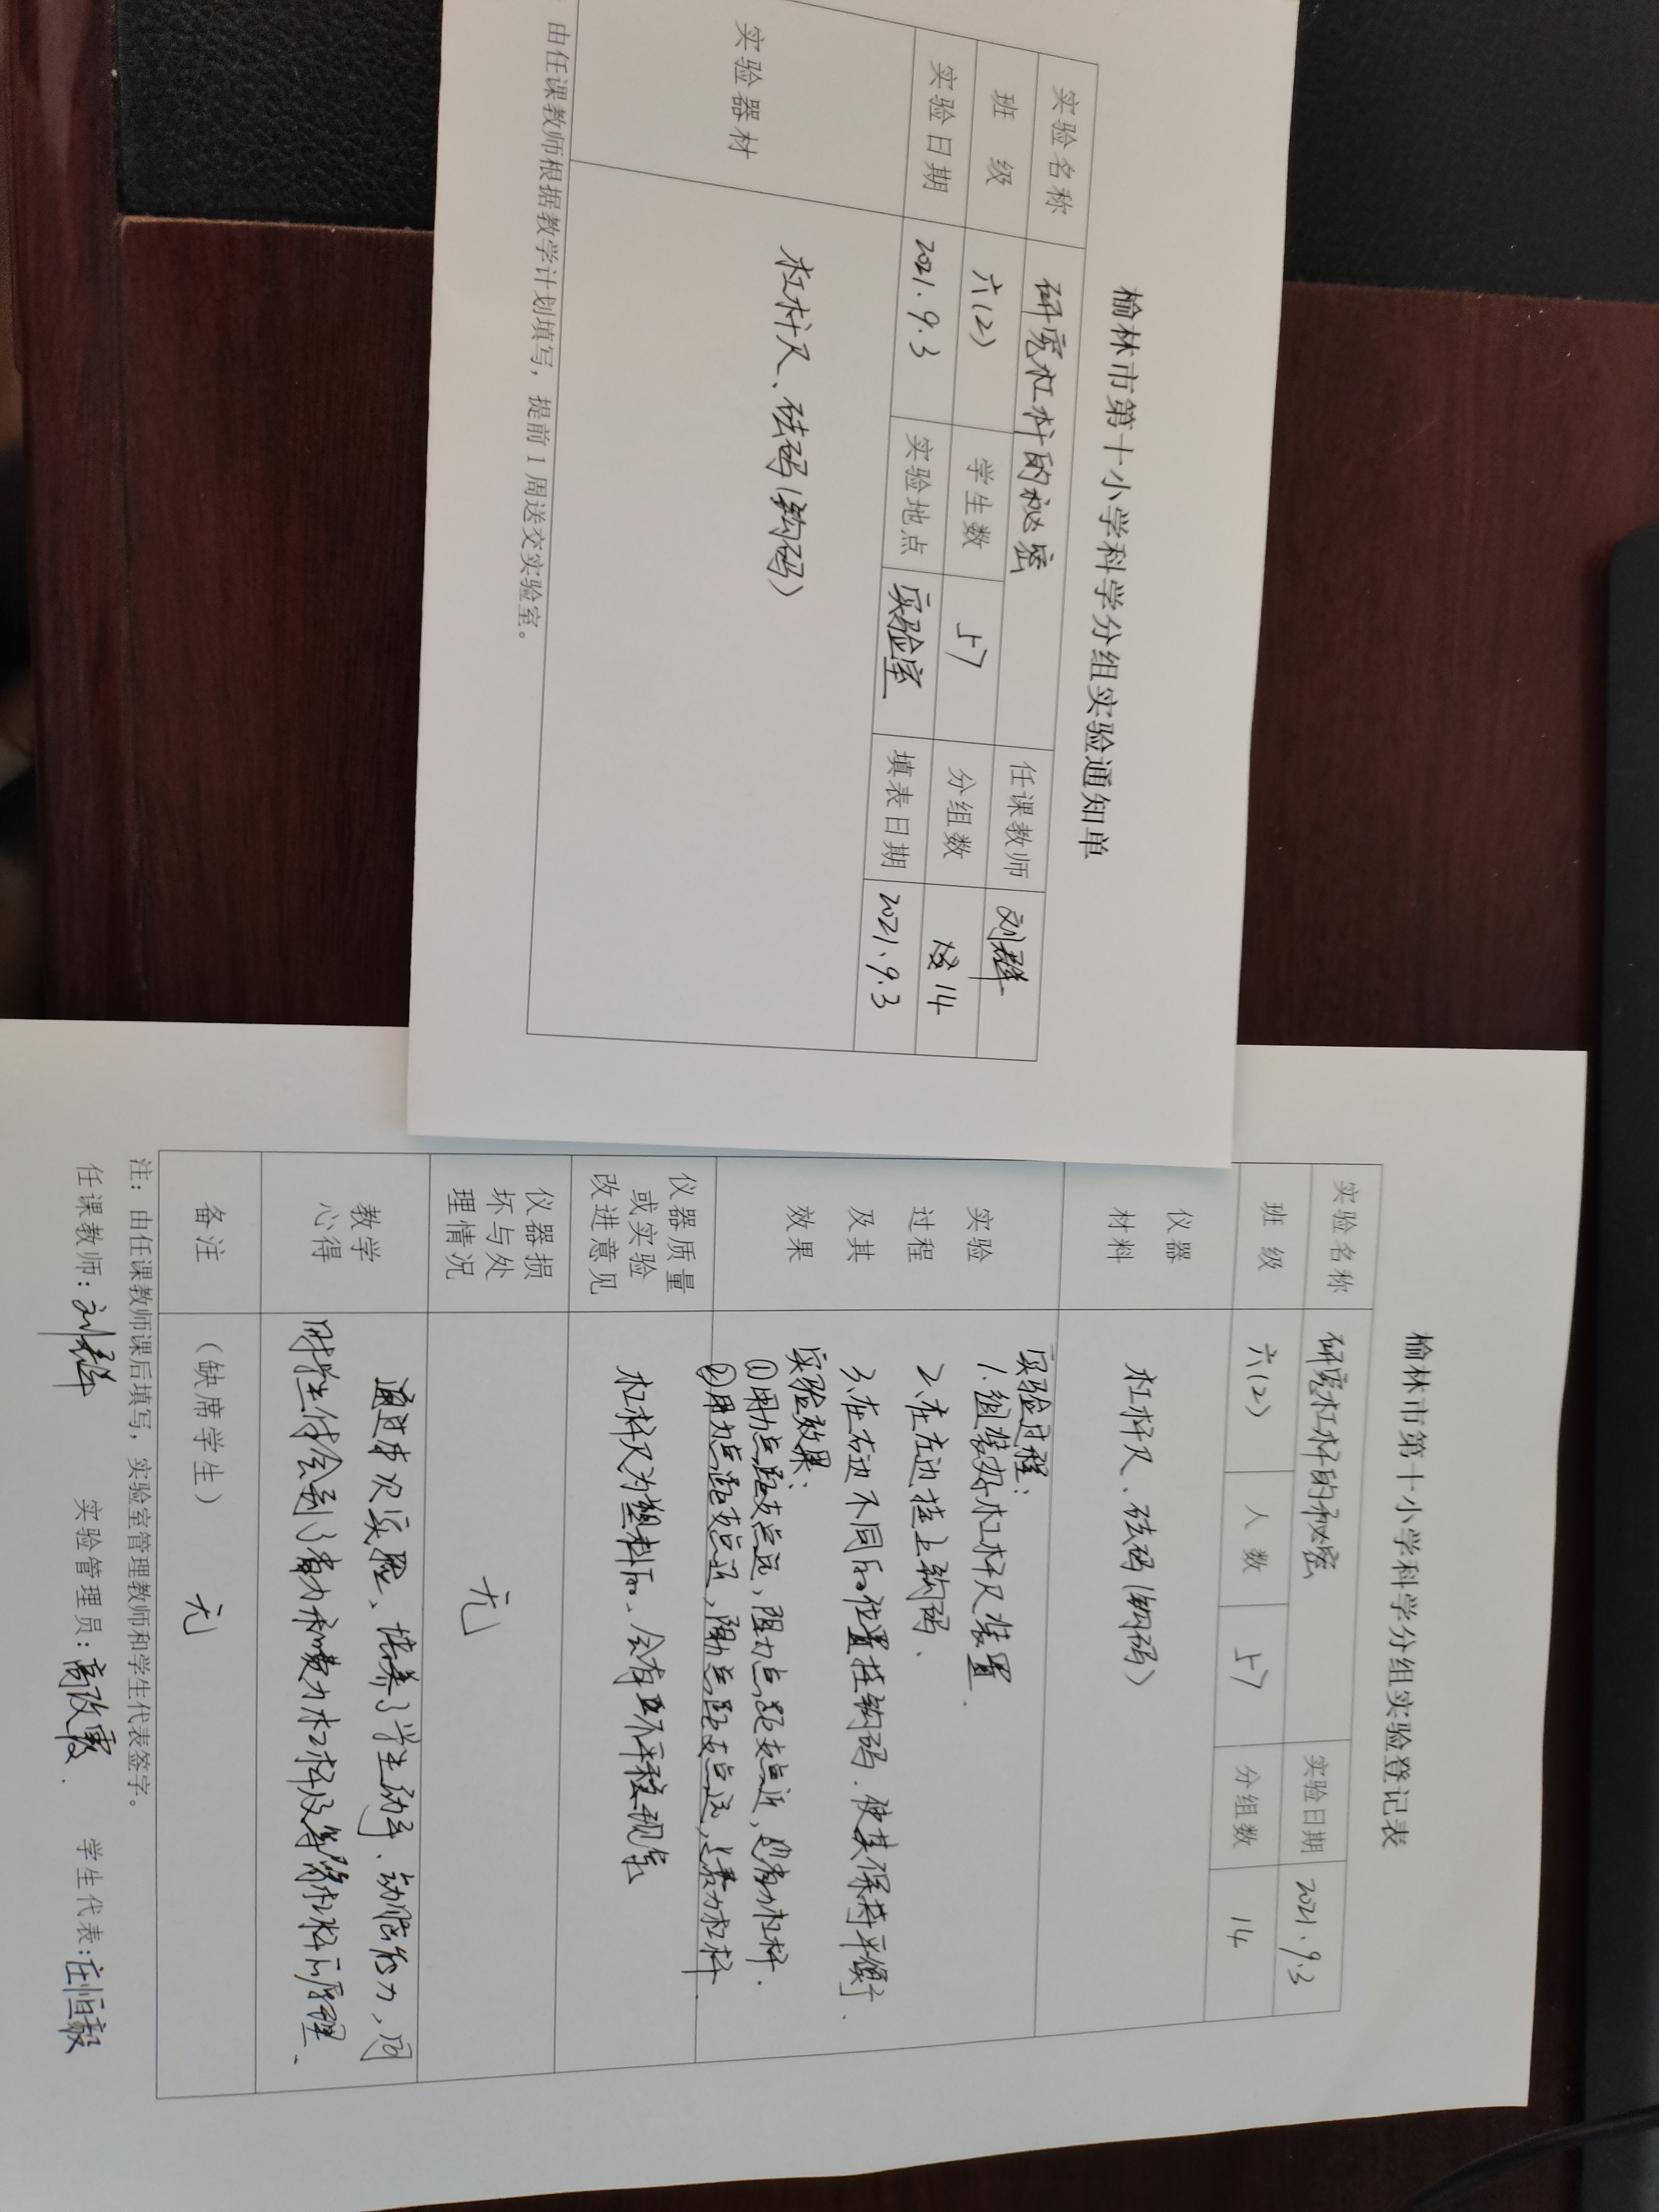 榆林市第十小学科学分组实验通知单
实验名称 研究杠杆的秘密 任课教师 刘群
班 级 六(2) 学生数 57 分组数 14
实验日期 2021.9.3 实验地点 实验室 填表日期 2021.9.3
实验器材 杠杆尺、砝码(钩码)
:由任课教师根据教学计划填写，提前1周送交实验室。
榆林市第十小学科学分组实验登记表
实验名称 研究杠杆的秘密 实验日期 2021.9.3
班 级 六(2) 人 数 57 分组数 14
仪器
材料
杠杆尺、砝码(钩码)
实验
过程
及其
效果
实验过程:
1.组装好杠杆尺装置.
2.在左边挂上钩码.
3.在右边不同的位置挂钩码.使其保持平衡.
实验效果:
①用力点距支点远,阻力点距支点近,是省力杠杆.
②用力点距支点近,阻力点距支点远,是费力杠杆.
仪器质量
或实验
改进意见
杠杆尺为塑料的、会有不平稳现象
仪器损
坏与处
理情况
无
教学
心得
通过本次实验、培养了学生动手、动脑能力,同
时学生体会到了省力和费力杠杆及等臂杠杆的原理.
备注 (缺席学生) 无
注：由任课教师课后填写，实验室管理教师和学生代表签字。
任课教师:刘群 实验管理员:高改霞. 学生代表:庄恒毅